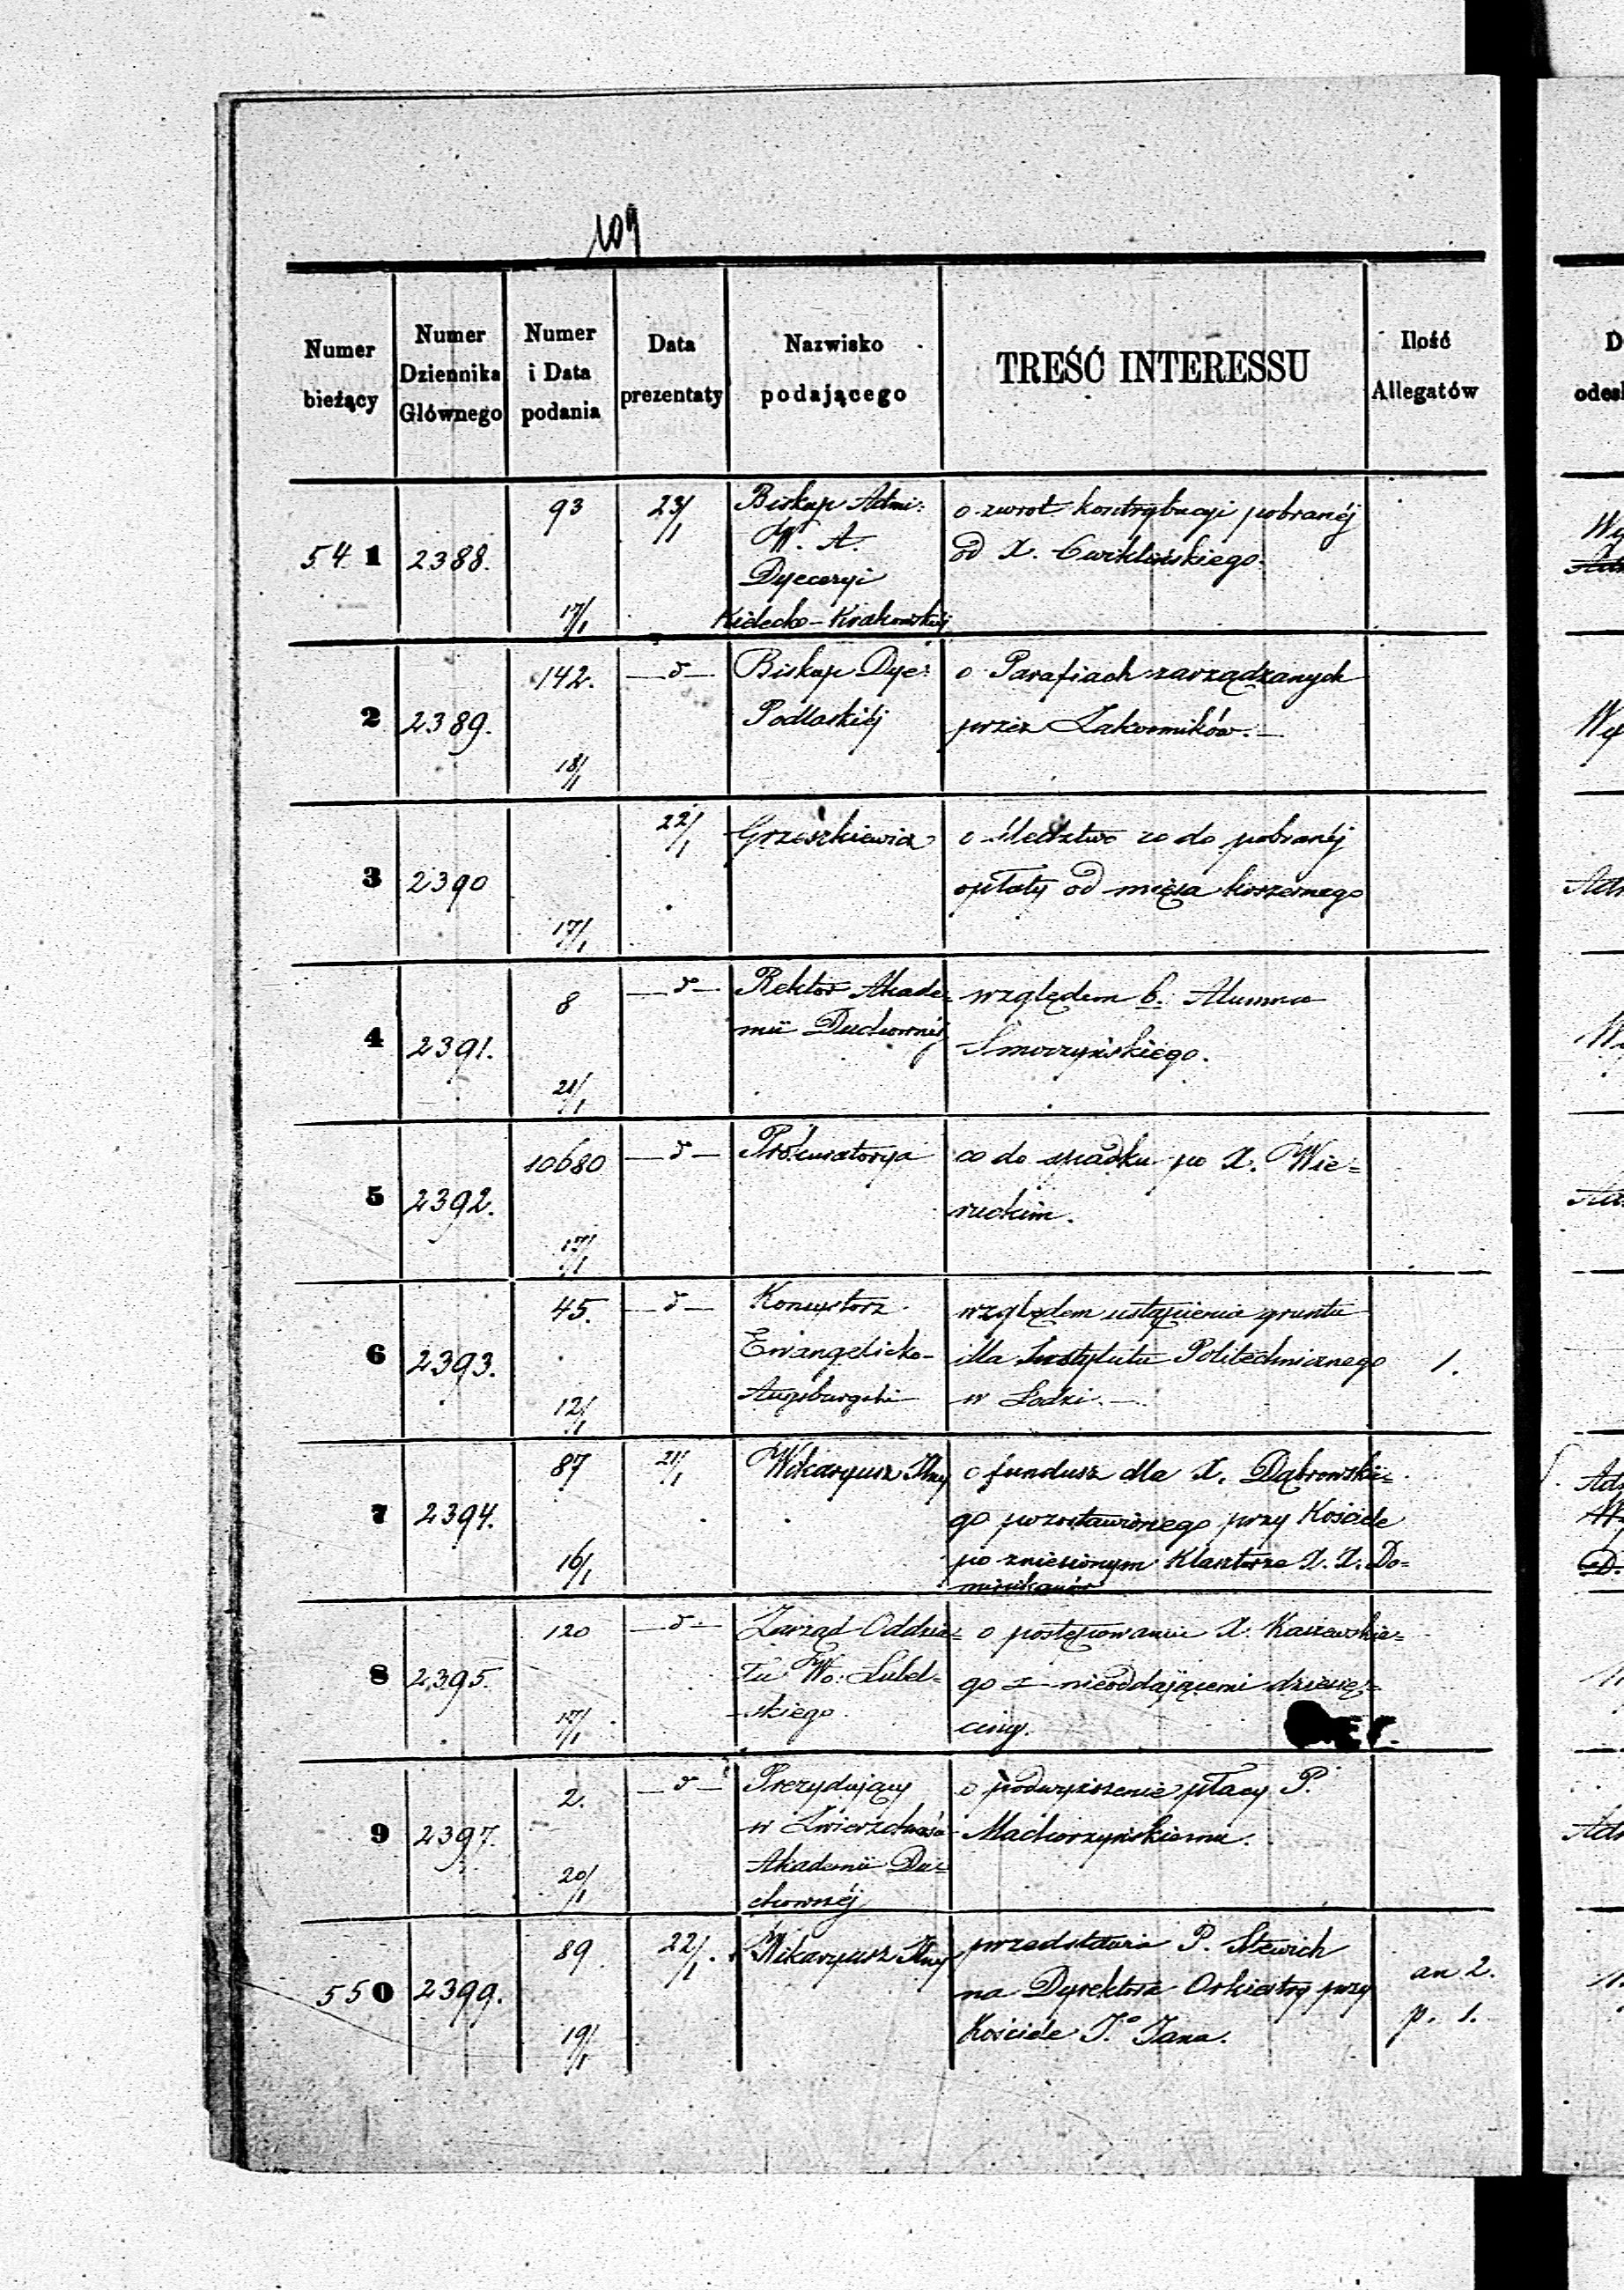 109
Numer bieżący
Numer Dziennika Głównego
Numer i Data podania
Data prezentaty
Nazwisko podającego
TREŚĆ INTERESSU
Ilość Allegatów
541 2388. 93 17/1 23/1
Biskup Admi:
W. A.
Dyecezyi
Kielecko-Krakowskiej
o zwrot kontrybucyi pobranéj
od X. Cwiklińskiego.
2 2389. 142. 18/1 —d—
Biskup Dye:
Podlaskiéj
o Parafiach zarządzanych
przez Zakonników.—
3 2390 17/1 22/1
Grzeszkiewicz
o śledztwo co do pobranéj
opłaty od mięsa koszernego
4 2391. 8 21/1 —d—
Rektor Akade-
mii Duchownéj
względem b. Alumna
Smoczyńskiego.
5 2392. 10680 17/1 —d—
Prokuratorya
co do spadku po X. Wie=
ruckim.
6 2393. 45. 12/1 —d—
Konsystorz
Ewangelicko-
Augsburgski
względem ustąpienia gruntu
dla Instytutu Politechnicznego
w Łodzi.—
1.
7 2394. 87 16/1 21/1
Wikaryusz Jlny
o fundusz dla X. Dąbrowskie=
go pozostawionego przy Kościele
po zniesionym Klasztorze X. X. Do=
minikanów
8 2395. 120 17/1 —d—
Zarząd Oddzia=
łu Wo. Lubel=
skiego
o postępowaniu X. Kaszewskie=
go z nieoddającemi dziesię=
ciny.
9 2397. 2. 20/1 —d—
Prezydujący
w Zwierzchności
Akademii Du=
chownéj
o podwyższenie płacy P.
Machorzyńskiemu.
550 2399. 89 19/1 22/1.
Wikaryusz Jlny
przedstawia P. Stewich
na Dyrektora Orkiestry przy
Kościele S.º Jana.
an 2.
p. 1.
D
odes